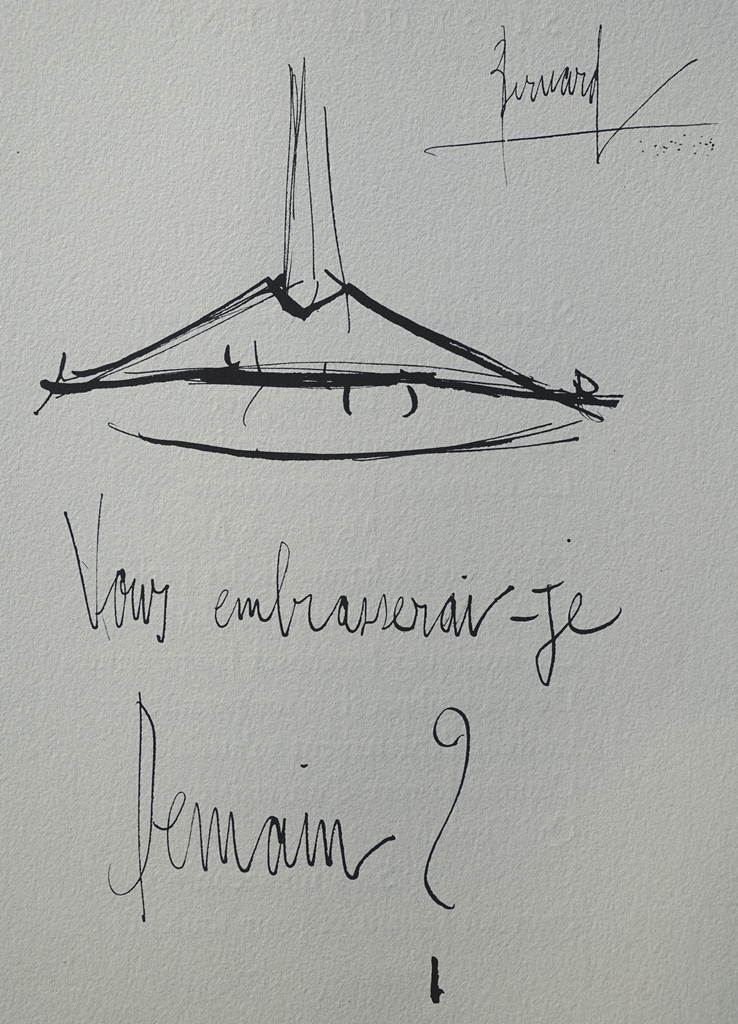 Bernard
Vous embrasserai-je
Demain ?